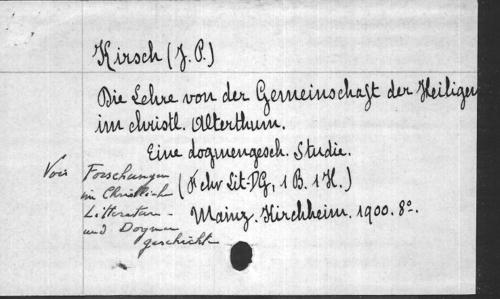 Kirsch (J. P.)
Die Lehre von der Gemeinschaft der Heiligen
im christl. Alterthum.
Eine dogmengesch. Studie.
Voir Forschungen
in Christlich
Litteratur -
und Dogmen
geschicht
(F chr Lit-DG, 1 B. 1 H.)
Mainz. Kirchheim. 1900. 8º.